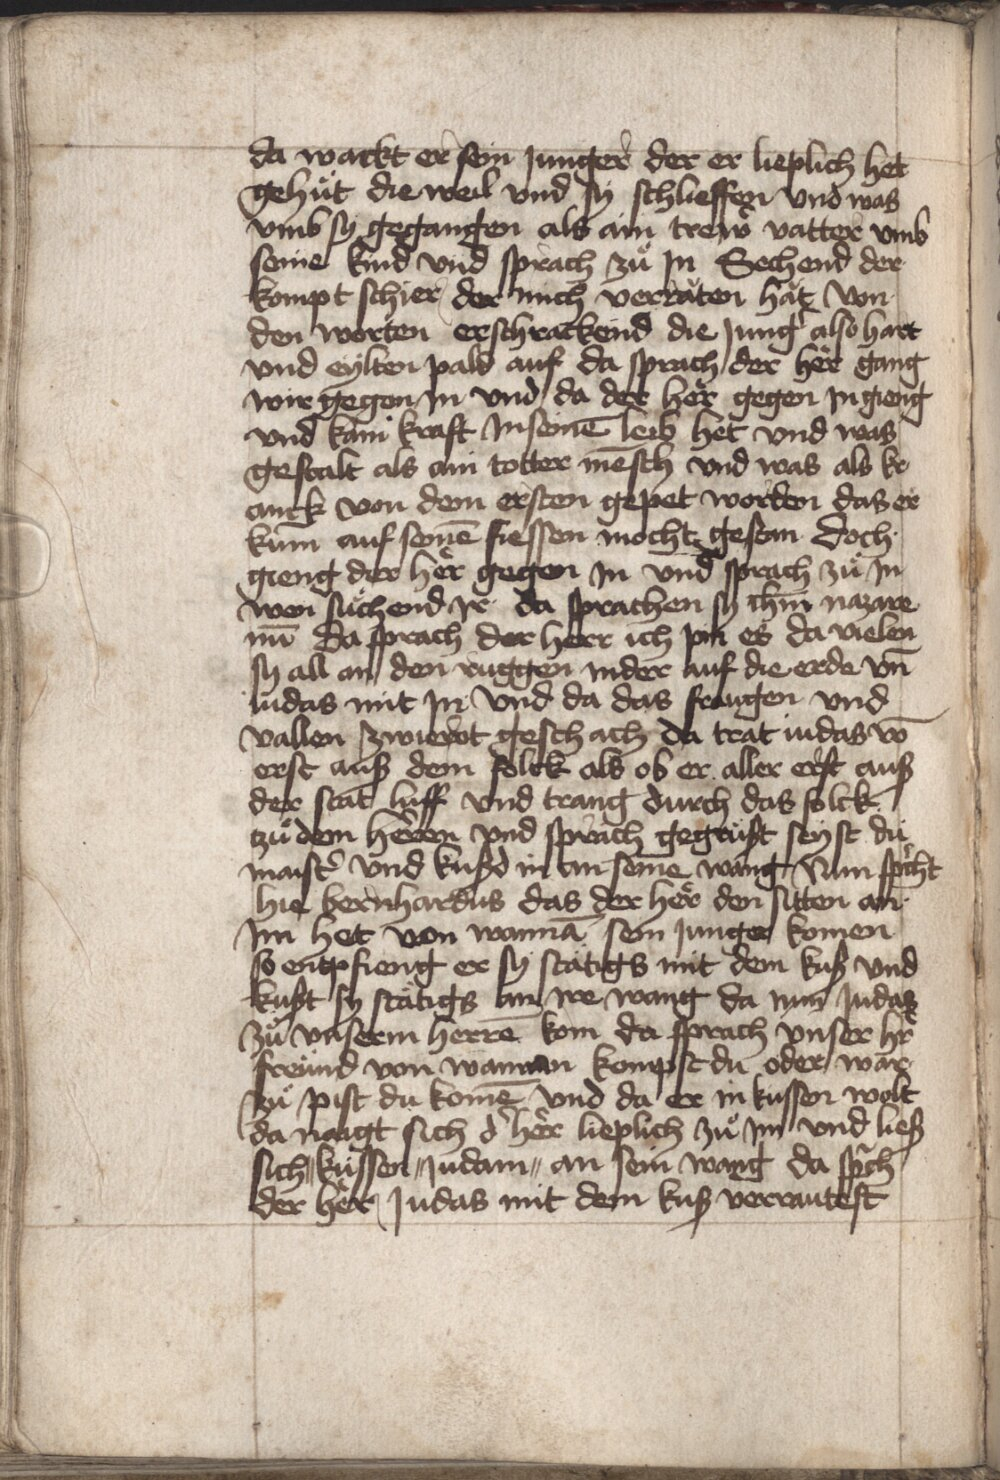 da wackt er sein Junger der er lieplich het
gehuͤt die weil vnd sy schlieffen vnd was
vmb sy gegangen als ain trew vatter vmb
seine kind vnd sprach zuͦ In Sechend der
kompt schier der mich verraten hat von
den worten erschrackend die Jung also hart
vnd eylten pald auf da sprach der her gang
wir gegen In vnd da der her gegen In gieng
vnd kain kraft In seinē leib het vnd was
gestalt als ain totter mēsch vnd was als kr
anck von dem ersten gepet worden das er
kum auf seinē fiessen mocht gestan doch
gieng der her gegen In vnd sprach zuͦ In
wen suͦchend Ir da sprachen sy ihm̄ nazare
nū Da sprach der herr ich pin es da vielen
sy all an den ruggen nider auf die erde vn̄
iudas mit In vnd da das fraugen vnd
vallen zwierot geschach da trat iudas vō
erst auß dem folck als ob er aller erst auß
der stat luff vnd trang durch das folck
zuͦ dem heren vnd sprach gegrust seyst du
maist͛ vnd kußd in an seine wang Nun spricht
hie bernhardus das der her den sitten an
Im het von wannā sein Junger komen
so entpfieng er sy statigs mit dem kuß vnd
kußt sy statigs an ire wang da nun Judas
zuͦ vnserm herrē kom da sprach vnser hr
freund von wannan kompst du oder war
zuͦ pist du komē vnd da er in kussen wolt
da naigt sich d͛ her lieplich zuͦ Im vnd ließ
sich kussen Judam an sein wang da sprach
der her Judas mit dem kuß verrautest